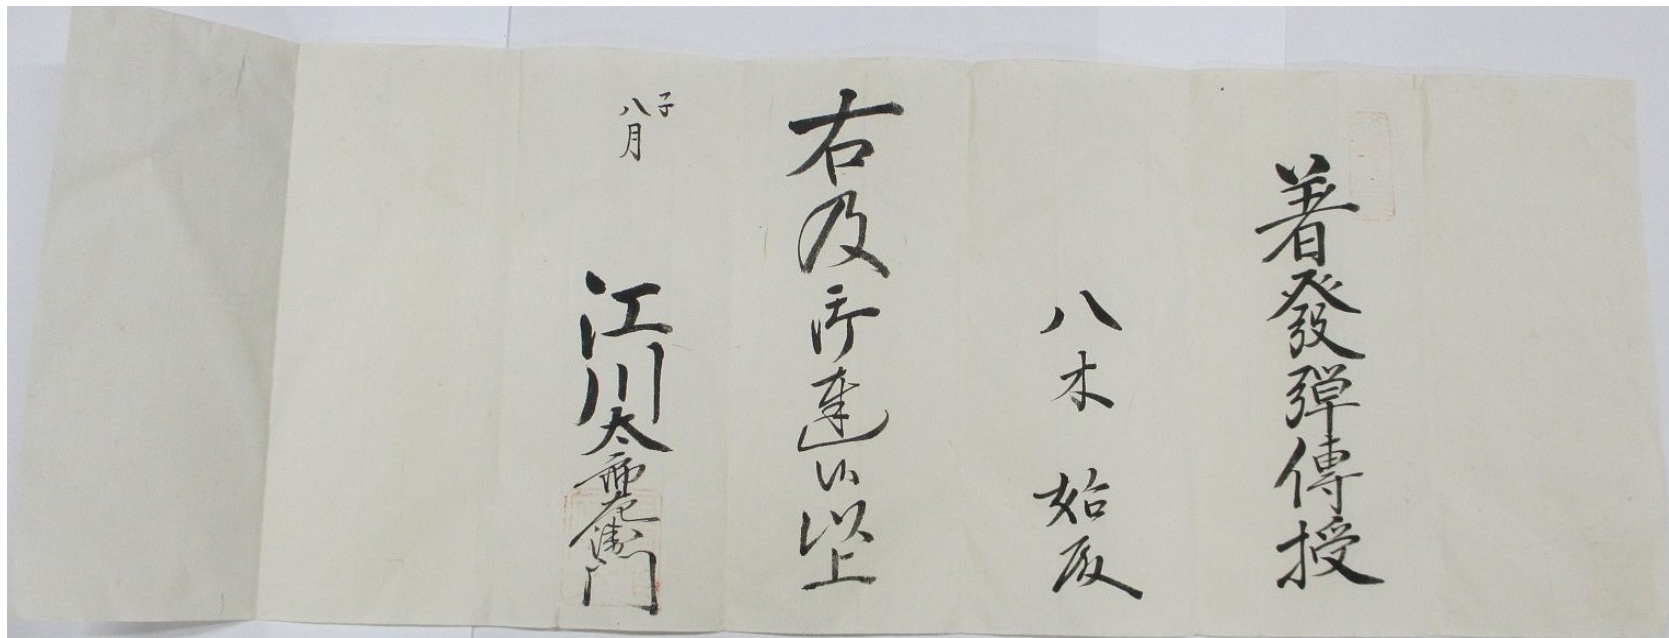 著發弾傳授
八木 始殿
右及御達候以上
子
八月
江川太郎左衛門